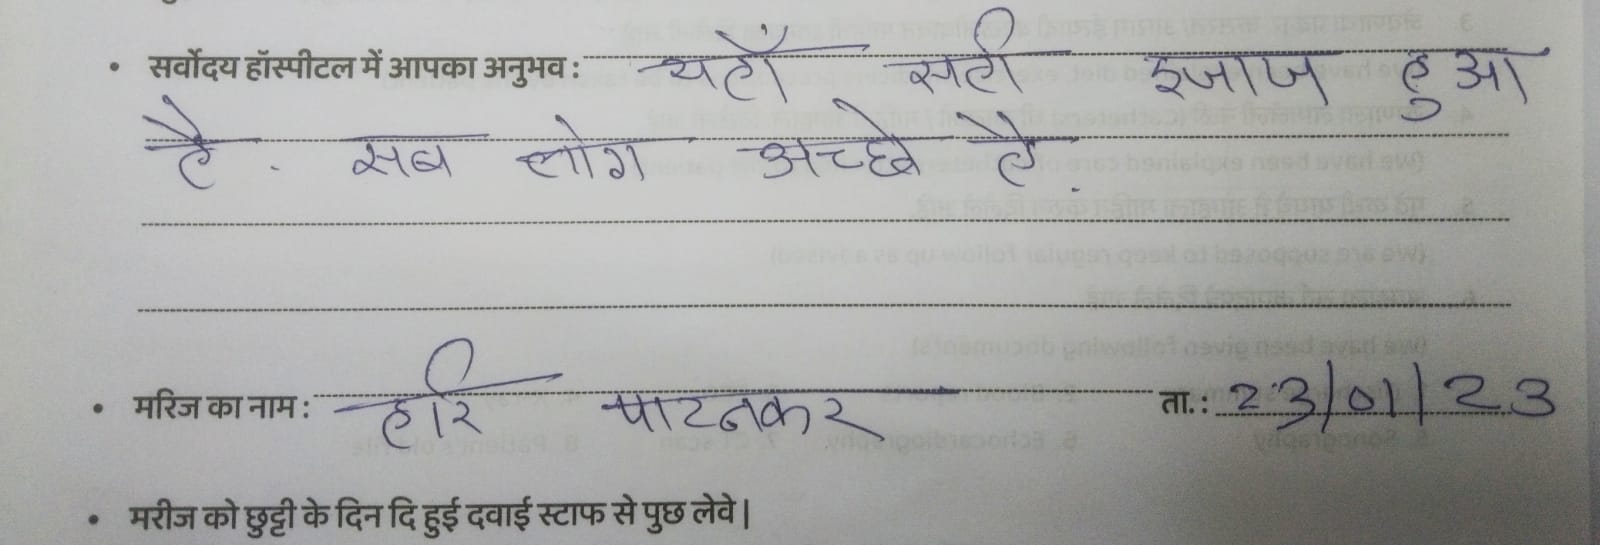 • सर्वोदय हॉस्पीटल में आपका अनुभव : यहाँ सही इजाज हुआ
है . सब लोग अच्छे है .
• मरिज का नाम : हरि पाटनकर ता. : 23/01/23
• मरीज को छुट्टी के दिन दि हुई दवाई स्टाफ से पुछ लेवे |